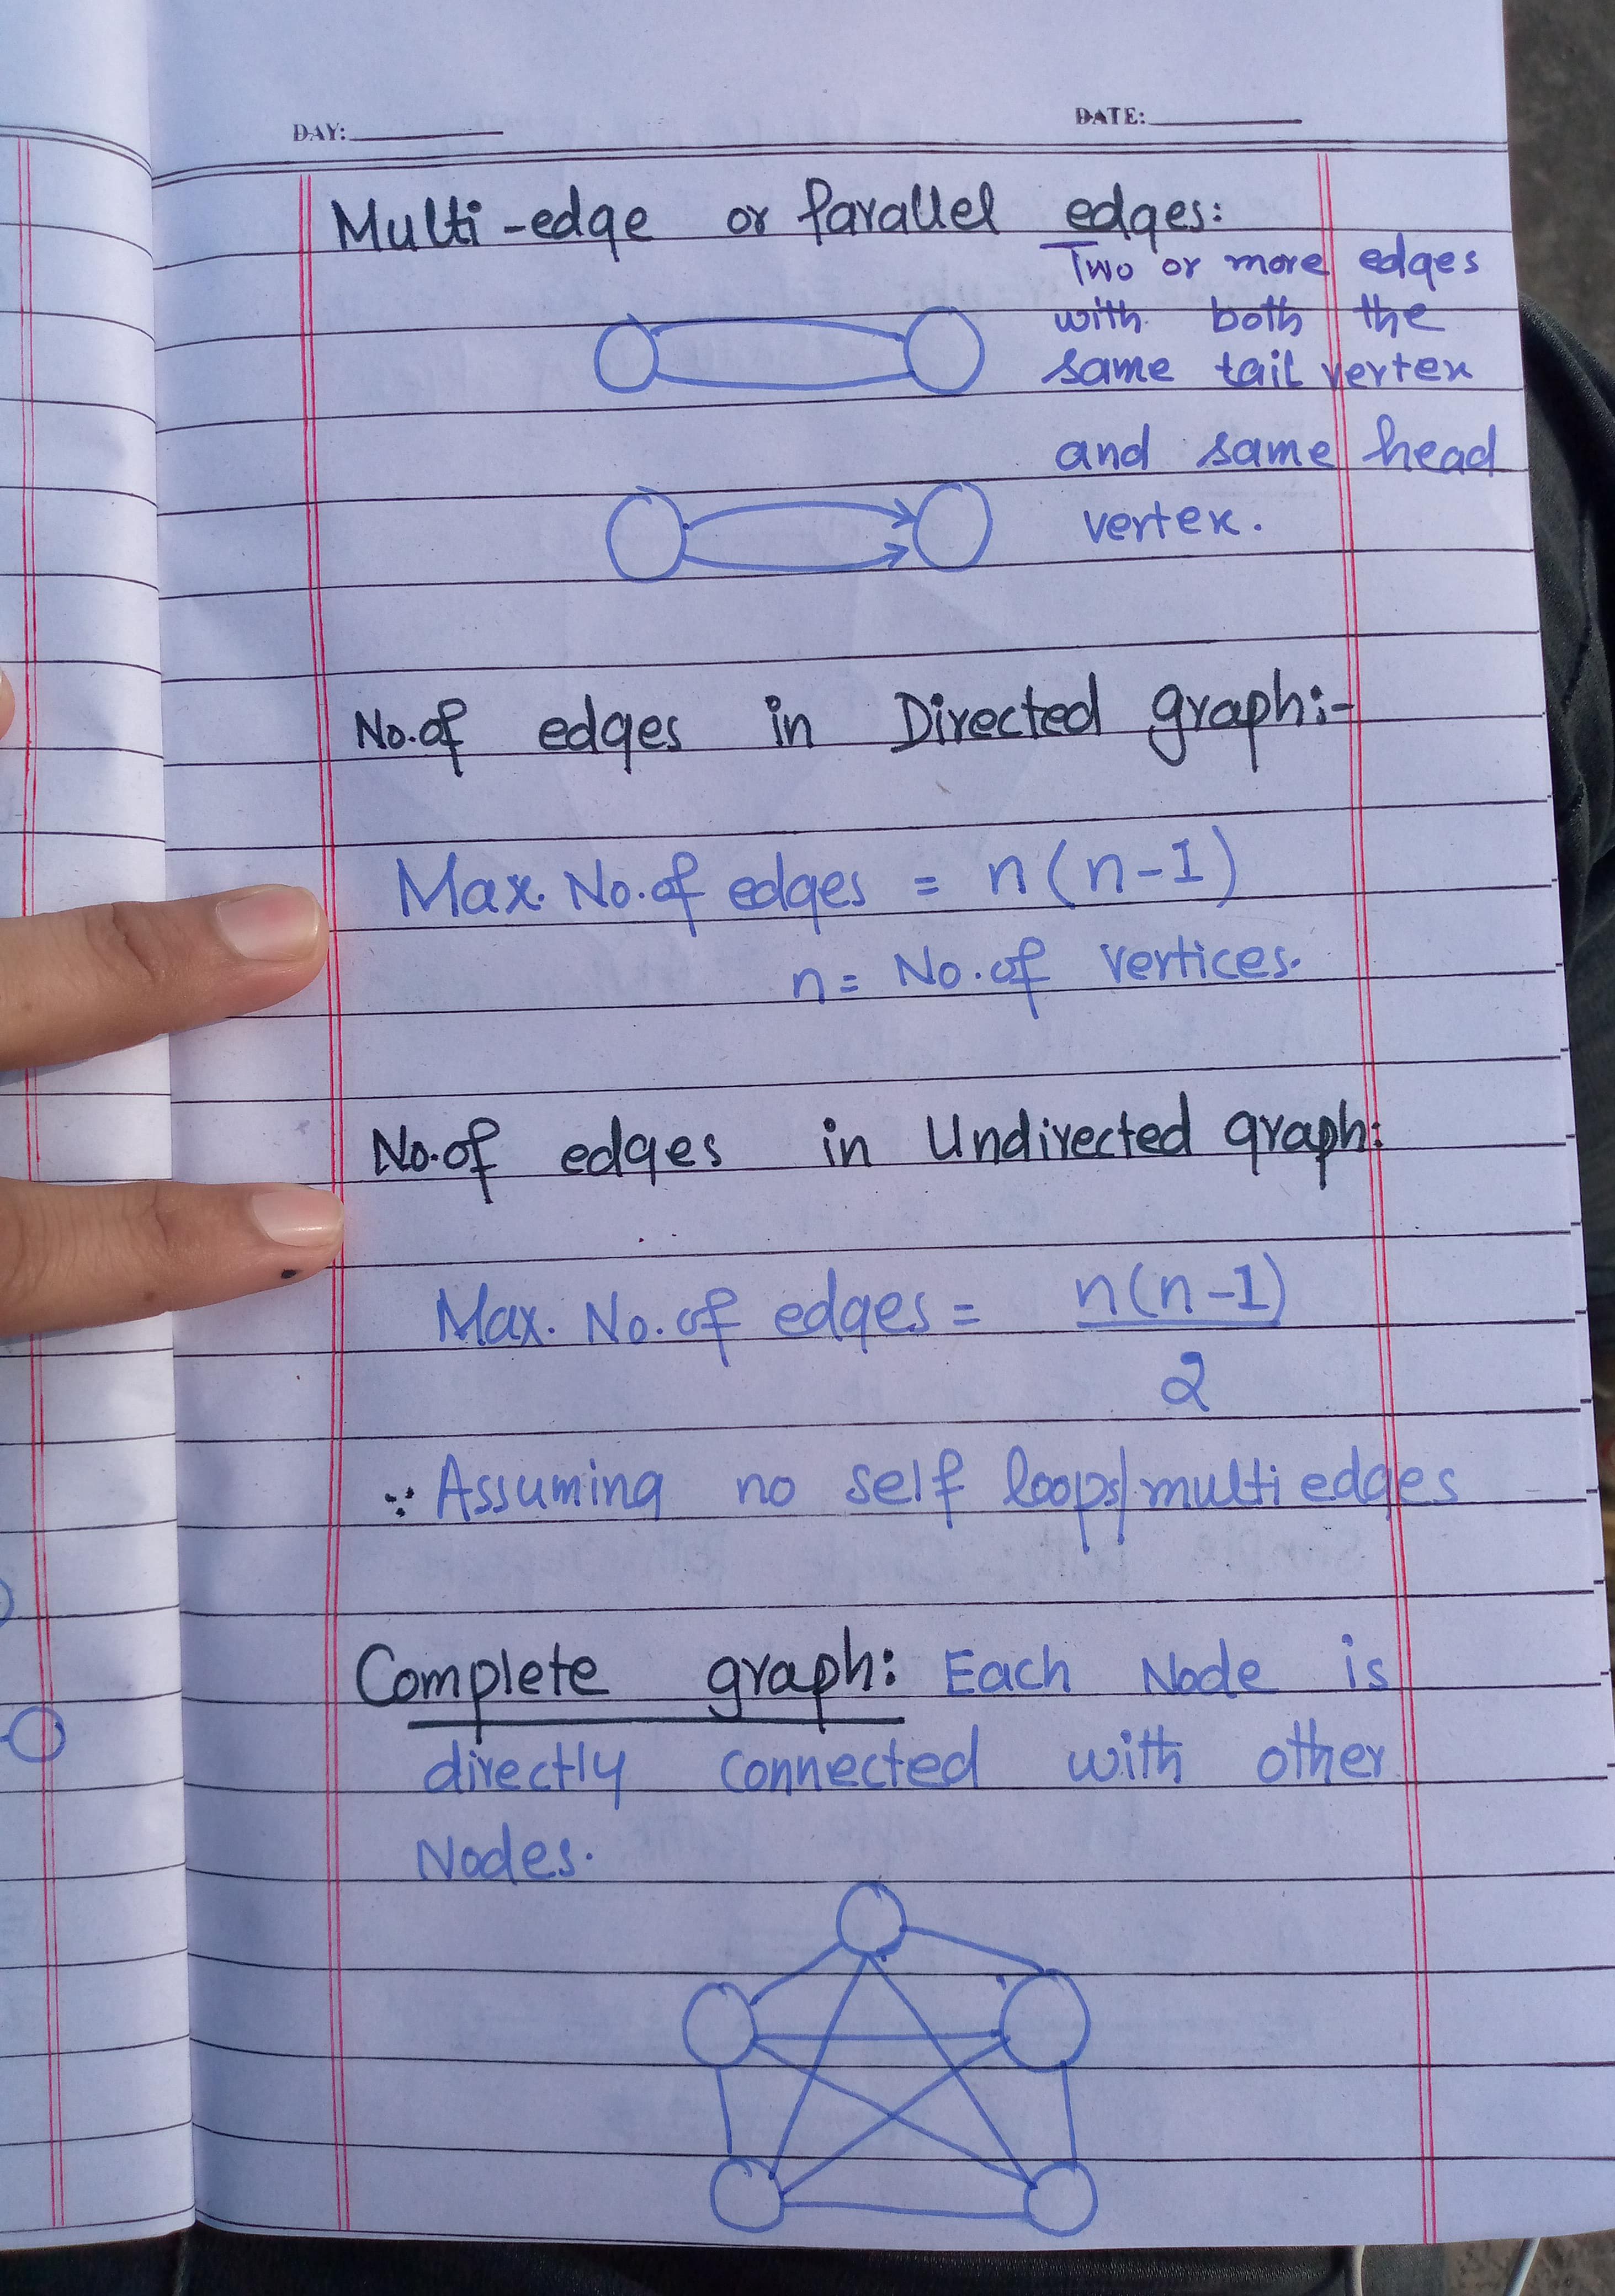 DAY: DATE:
Multi-edge or Parallel edges:
Two or more edges
with both the
same tail vertex
and same head
vertex.
No. of edges in Directed graph:-
Max. No. of edges = n(n-1)
n = No. of vertices.
No. of edges in Undirected graph:
Max. No. of edges = n(n-1)
2
∵ Assuming no self loops/multi edges
Complete graph: Each Node is
directly connected with other
Nodes.